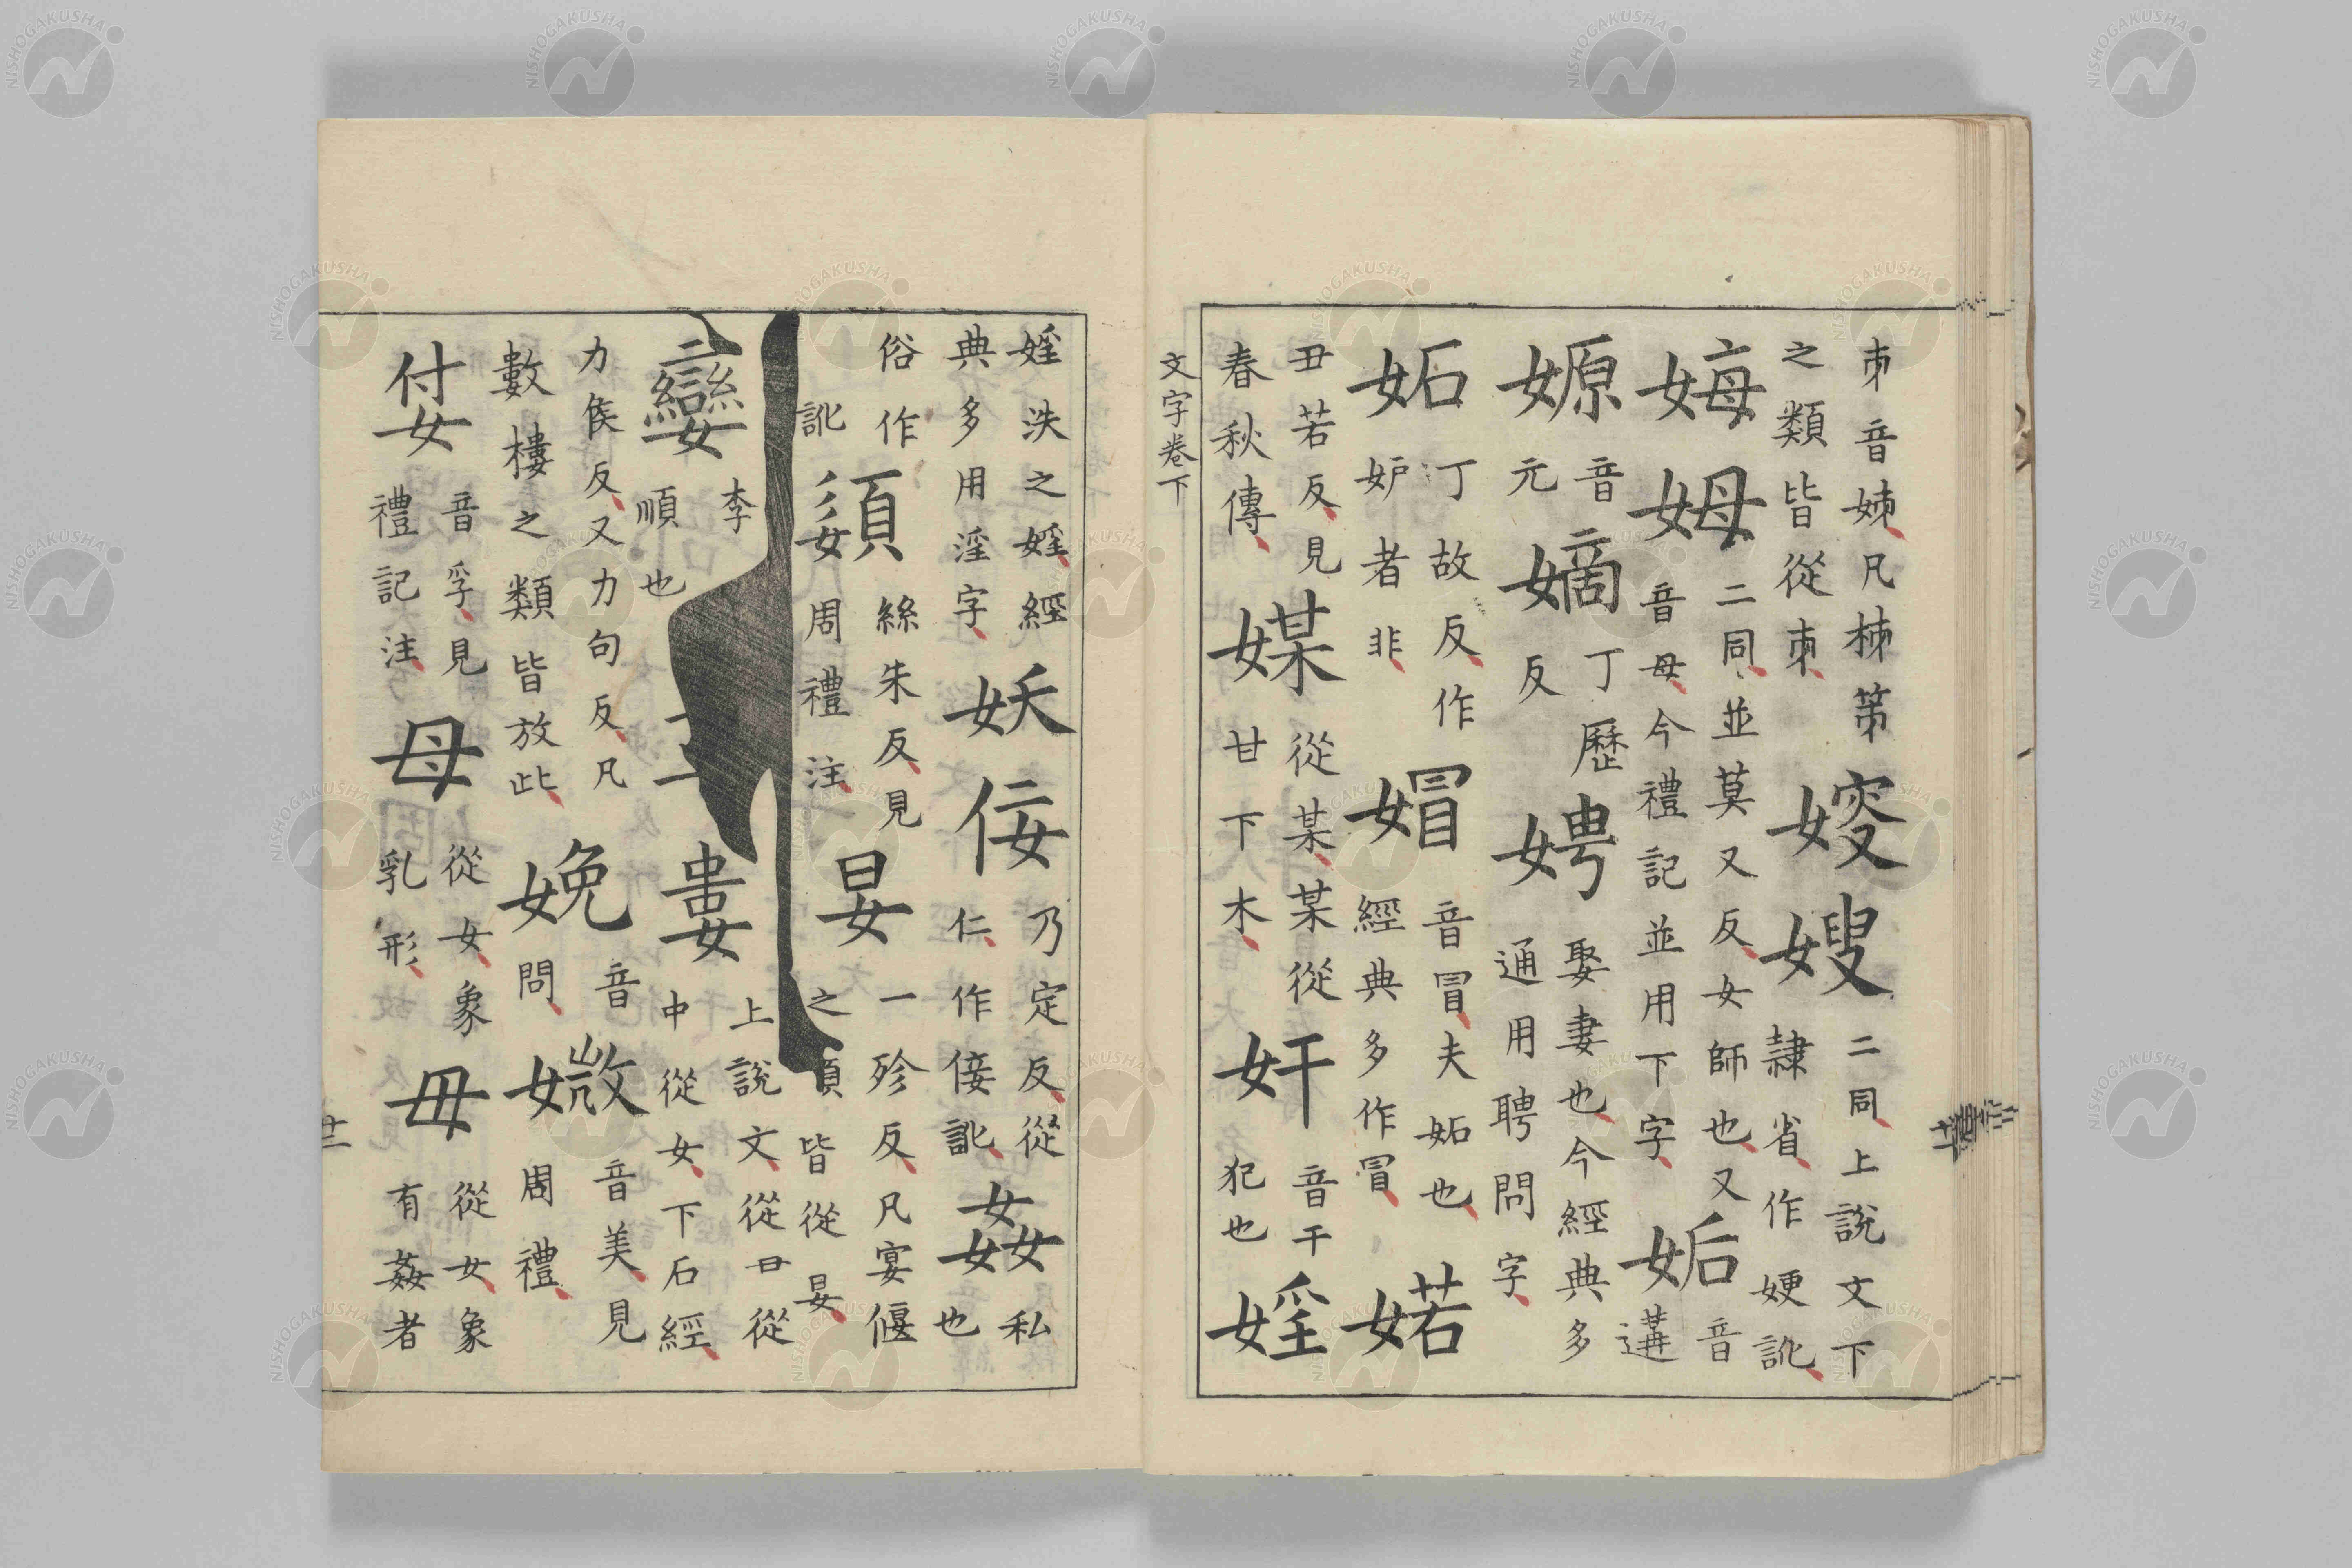 朿音姊凡柹第之類皆從朿㛮嫂二同上說文下隷省作㛐訛
娒姆二同並莫又反女師也又音母今禮記並用下字姤音遘
嫄音元嫡丁歷反娉娶妻也今經典多通用聘問字
妬丁故反作妒者非媢音冒夫妬也經典多作冒婼
丑若反見春秋傳媒從某某從甘下木奸音干犯也婬
文字卷下
婬泆之婬經典多用淫字妖佞乃定反從仁作侫訛姦私也
俗作訛嬃絲朱反見周禮注妟一殄反凡宴偃之類皆從妟
孌李順也婁上說文從毌從中從女下石經
力侯反又力句反凡數樓之類皆放此娩音問媺音美見周禮
㚬音孚見禮記注母從女象乳形毋從女象有姦者
NISHOGAKUSHA